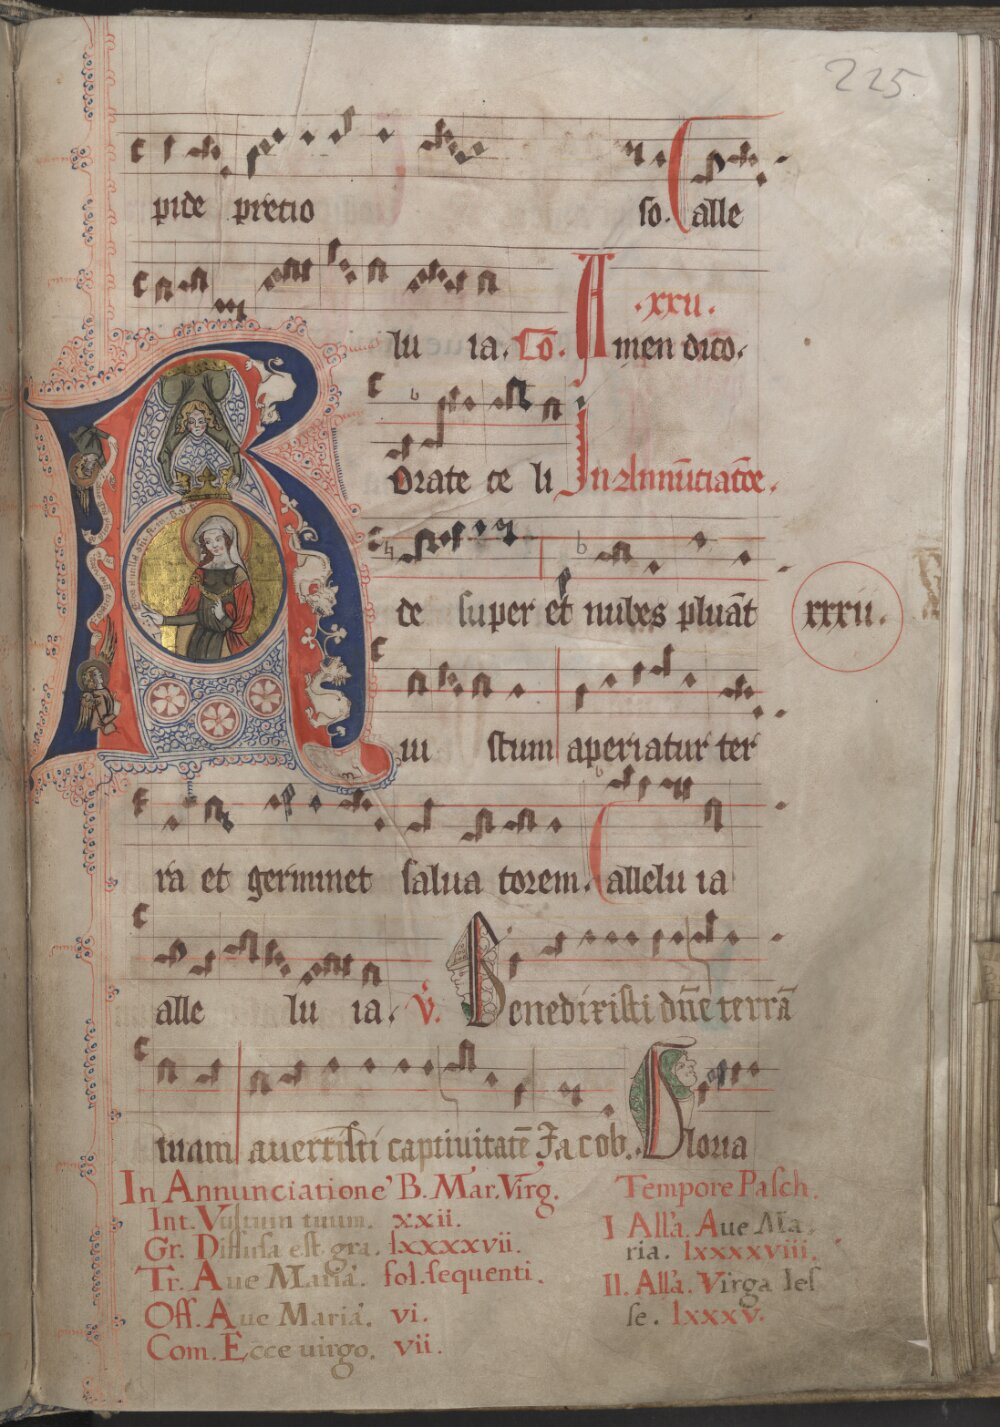 225.
pide pretio so. alle
.xxii.
lu ia. Co. Amen dico.
Rorate ce li In Annūciatōe.
de super et nubes pluāt xxxii.
iu stum aperiatur ter
ra et germinet salua torem. allelu ia
alle lu ia. V. Benedixisti dn̄e terrā
tuam auertisti captiuitatē Jacob. Gloria
In Annunciatione B. Mar. Virg. Tempore Pasch.
Int. Vultum tuum. xxii. I All'a. Aue Ma
Gr. Diffusa est gra. lxxxxvii. ria. lxxxxviii.
Tr. Aue Maria. fol. sequenti. II. All'a. Virga Ies
Off. Aue Maria. vi. se. lxxxv.
Com. Ecce uirgo. vii.